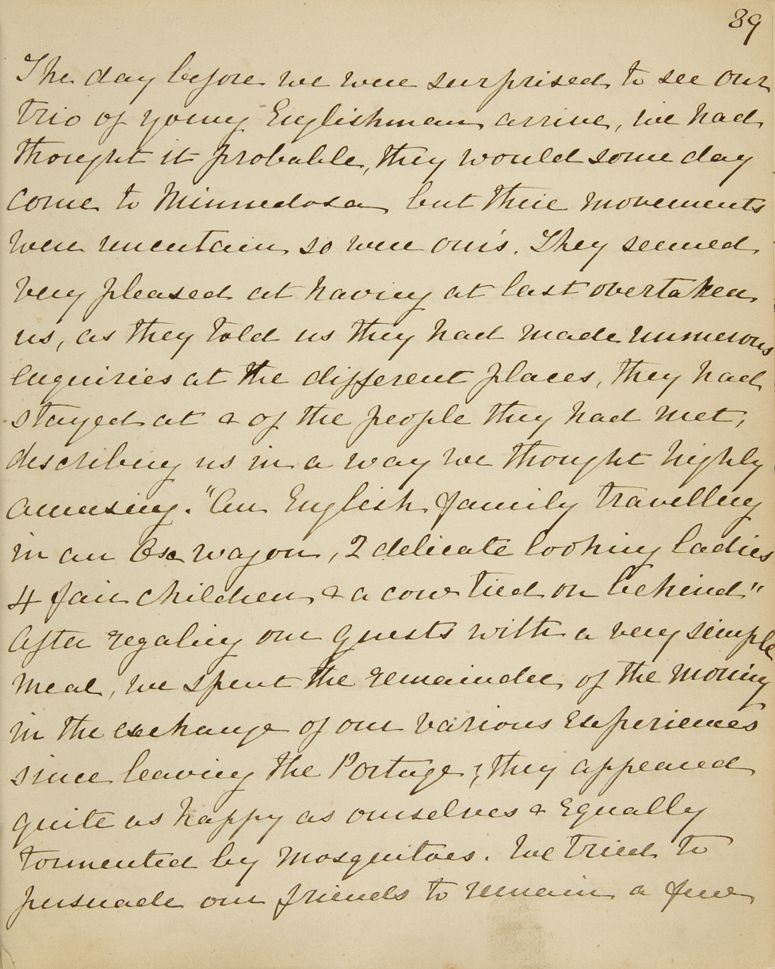 89
The day before we were surprised to see our
trio of young Englishmen arrive, we had
thought it probable, they would some day
come to Minnedosa but their movements
were uncertain so were our's. They seemed
very pleased at having at last overtaken
us, as they told us they had made numerous
enquiries at the different places, they had
stayed at & of the people they had met,
describing us in a way we thought highly
amusing. "An English family travelling
in an Ox wagon, 2 delicate looking ladies
4 fair children & a cow tied on behind"
After regaling our guests with a very simple
meal, we spent the remainder of the morning
in the exchange of our various experiences
since leaving the Portage; they appeared
quite as happy as ourselves & equally
tormented by mosquitoes. We tried to
persuade our friends to remain a few